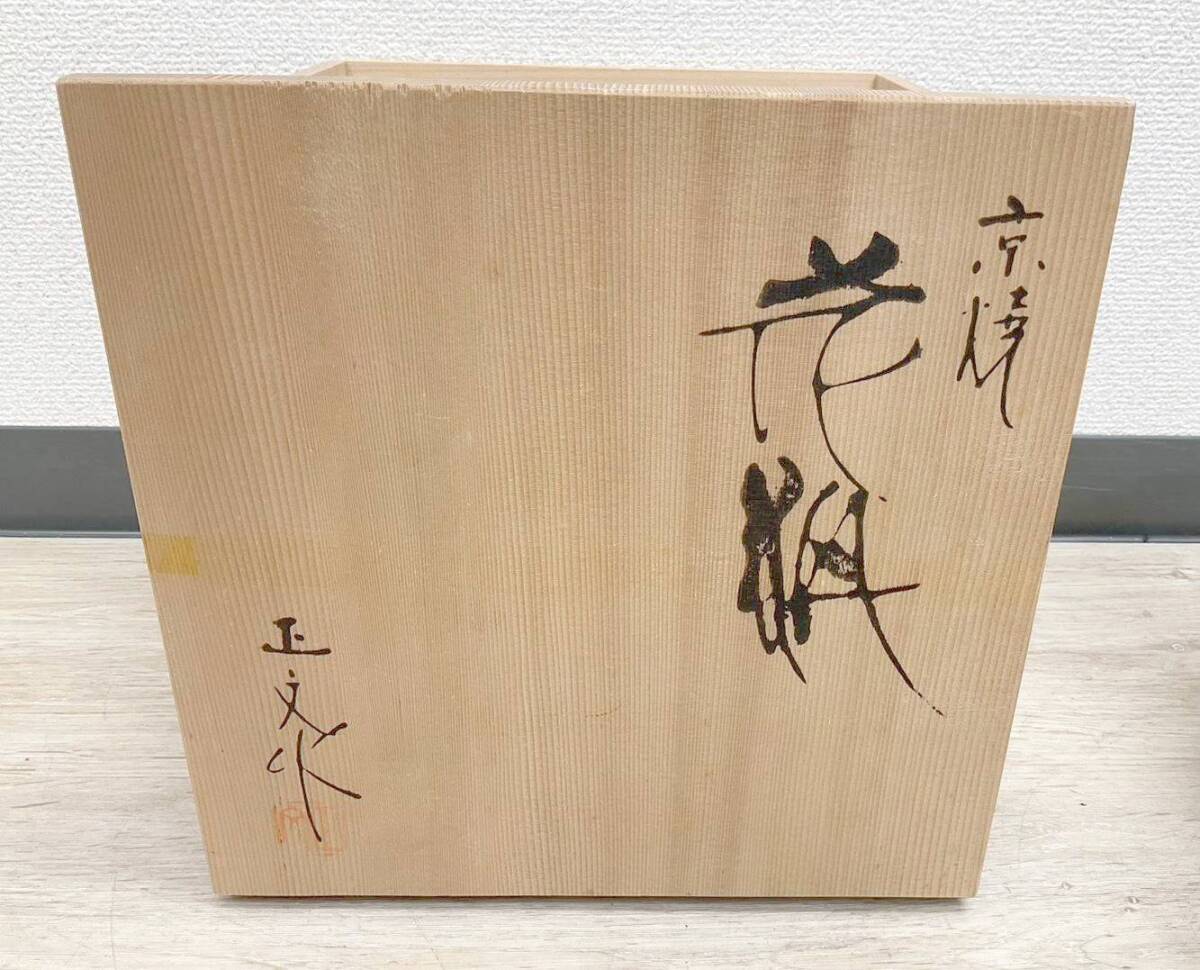 京焼
花瓶
正文作